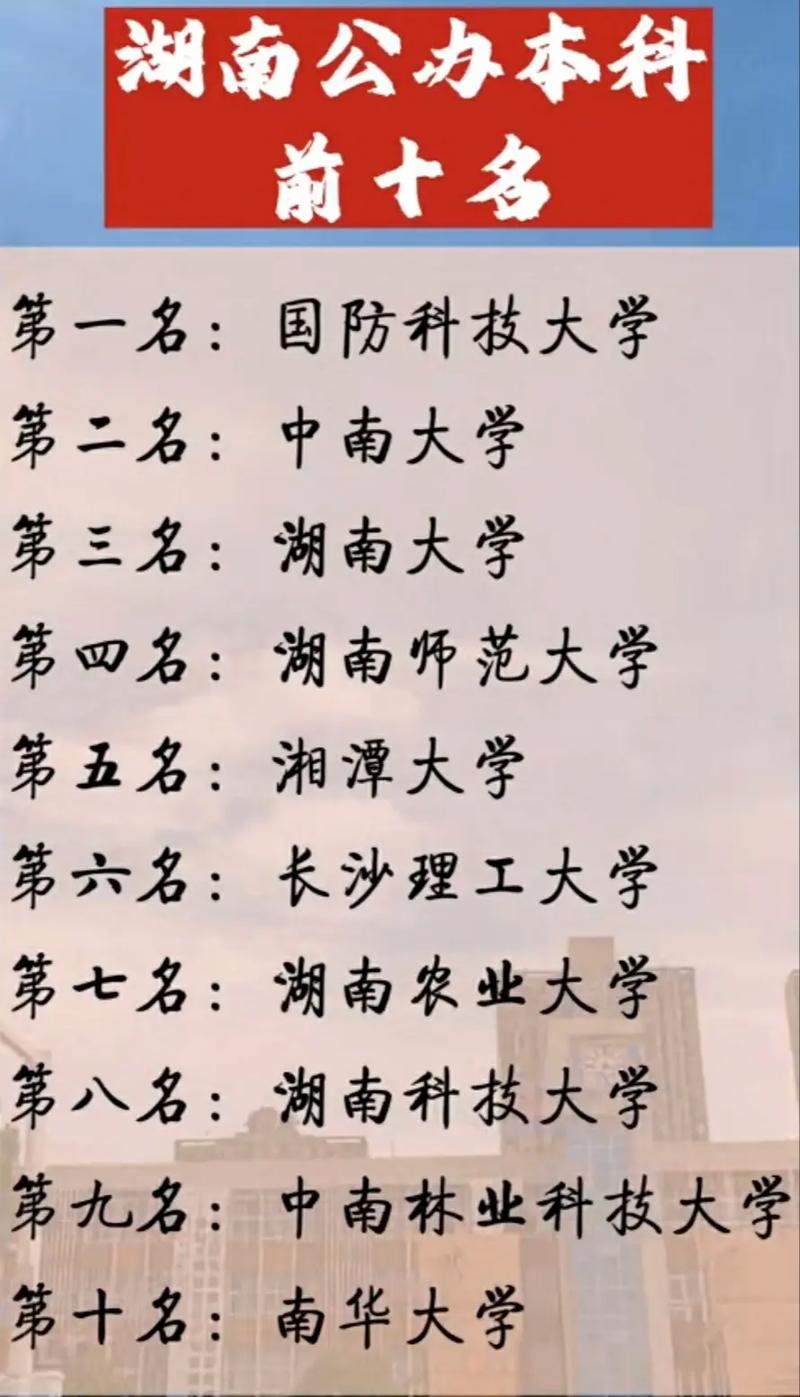 湖南公办本科
前十名
第一名：国防科技大学
第二名：中南大学
第三名：湖南大学
第四名：湖南师范大学
第五名：湘潭大学
第六名：长沙理工大学
第七名：湖南农业大学
第八名：湖南科技大学
第九名：中南林业科技大学
第十名：南华大学